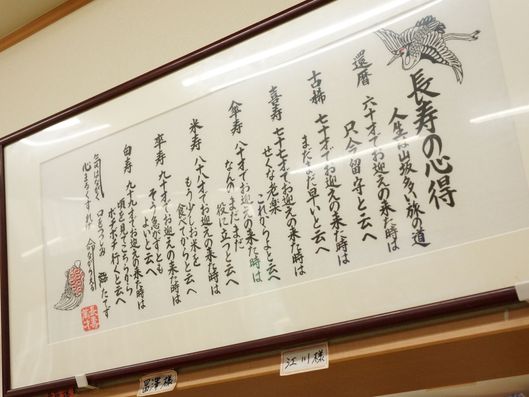 長寿の心得
人生は山坂多い旅の道
還暦 六十才でお迎えの来た時は
只今留守と云へ
古稀 七十才でお迎えの来た時は
まだまだ早いと云へ
喜寿 七十七才でお迎えの来た時は
せくな老楽これからよと云へ
傘寿 八十才でお迎えの来た時は
なんのまだまだ役に立つと云へ
米寿 八十八才でお迎えの来た時は
もう少しお米を食べてからと云へ
卒寿 九十才でお迎えの来た時は
そう急がずともよいと云へ
白寿 九十九才でお迎えの来た時は
頃を見てこちらからボツボツ行くと云へ
気はながく 口をつつしみ 腹たてず
心まるくすれば 命ながらえる
冨澤様
江川様